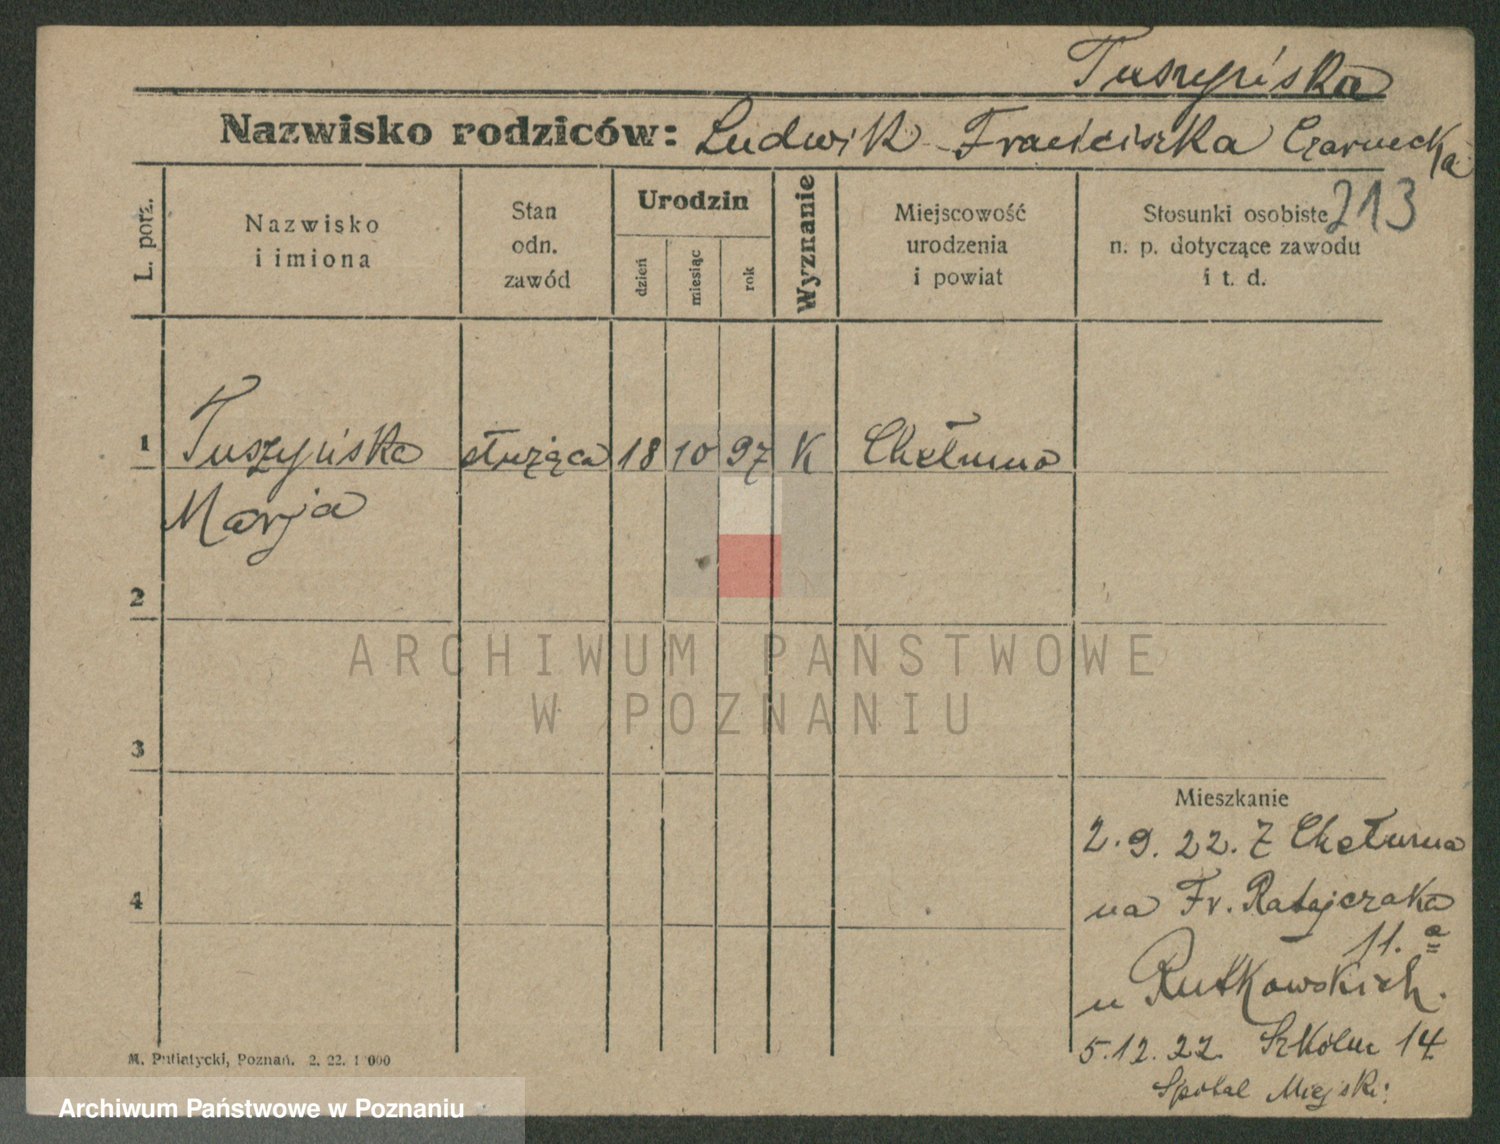 Tuszyńska
Nazwisko rodziców: Ludwik Franciszka Czarnecka
213
L. porz.
Nazwisko
i imiona
Stan
odn.
zawód
Urodzin
dzień
miesiąc
rok
Wyznanie
Miejscowość
urodzenia
i powiat
Stosunki osobiste
n. p. dotyczące zawodu
i t. d.
1 Tuszyńska służąca 18 10 97 K Chełmno
Marja
2
ARCHIWUM PAŃSTWOWE
W POZNANIU
3
Mieszkanie
2.9.22. Z Chełmna
4
na Fr. Ratajczaka
11. a
u Rutkowskich.
5.12.22. Szkolna 14
Szpital Miejski
M. Putiatycki, Poznań. 2. 22. 1 000
Archiwum Państwowe w Poznaniu